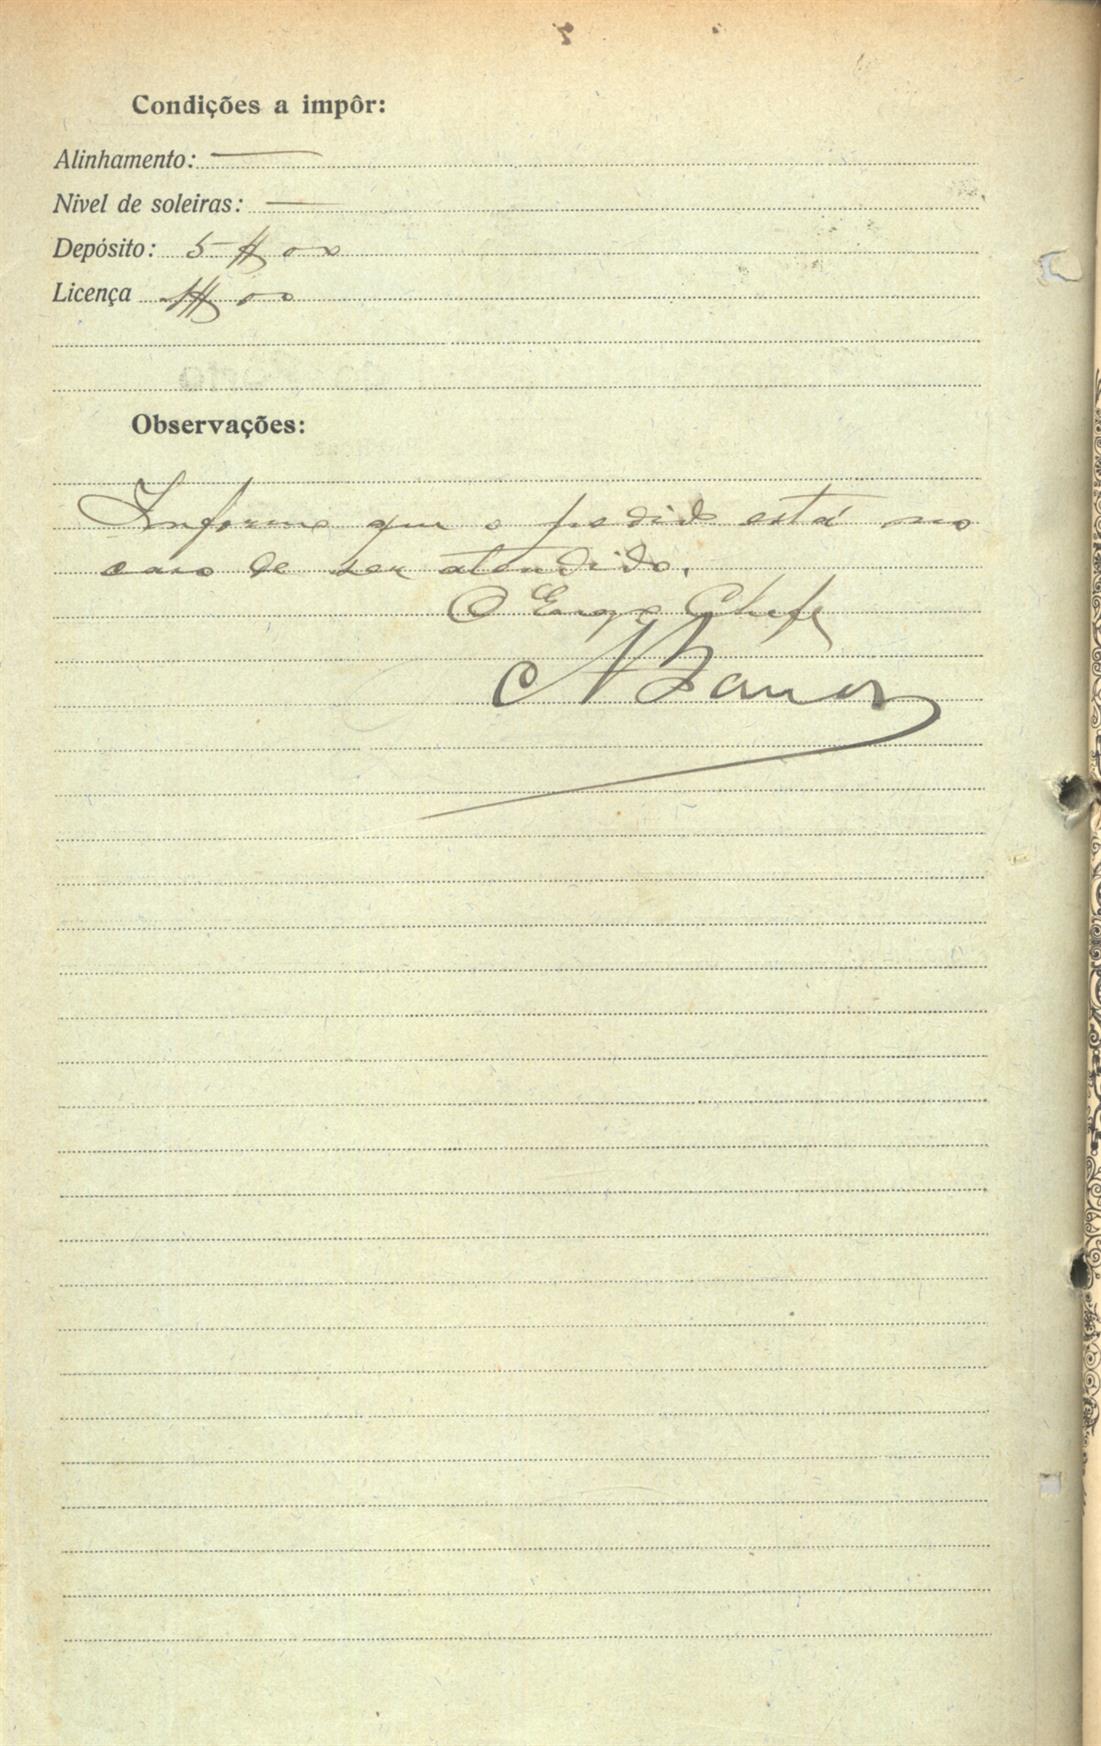 Condições a impôr:
Alinhamento: —
Nivel de soleiras: —
Depósito: 5$00
Licença 1$00
Observações:
Informo que o pedido está no
caso de ser atendido.
O Engº Chefe